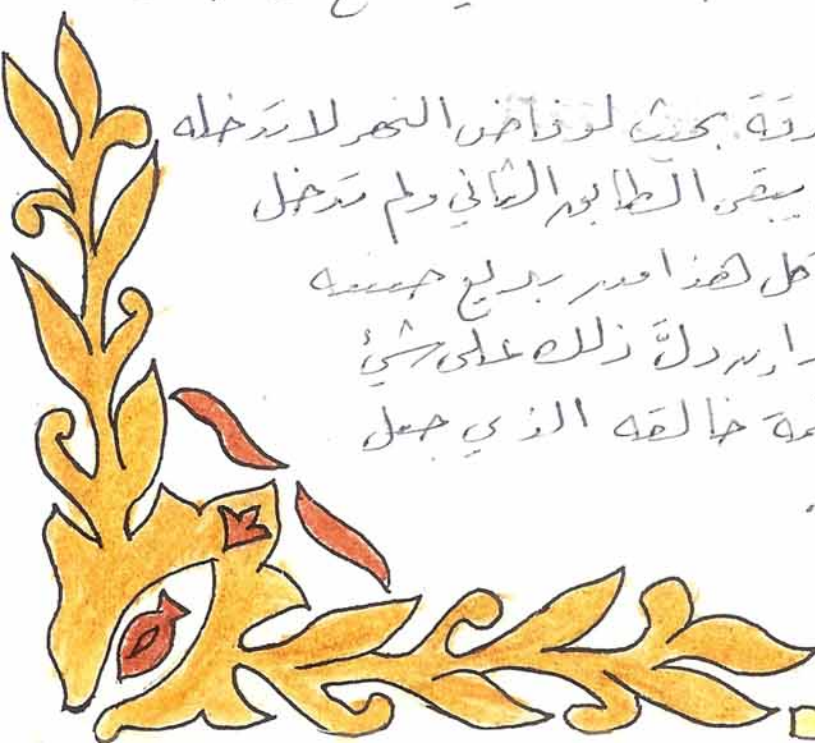 بحيث لو فاض النهر لا تدخله
يبقى الطابق الثاني ولم تدخل
كل هذا من بديع صنعه
دلَّ ذلك على شيئ
خالقه الذي جعل